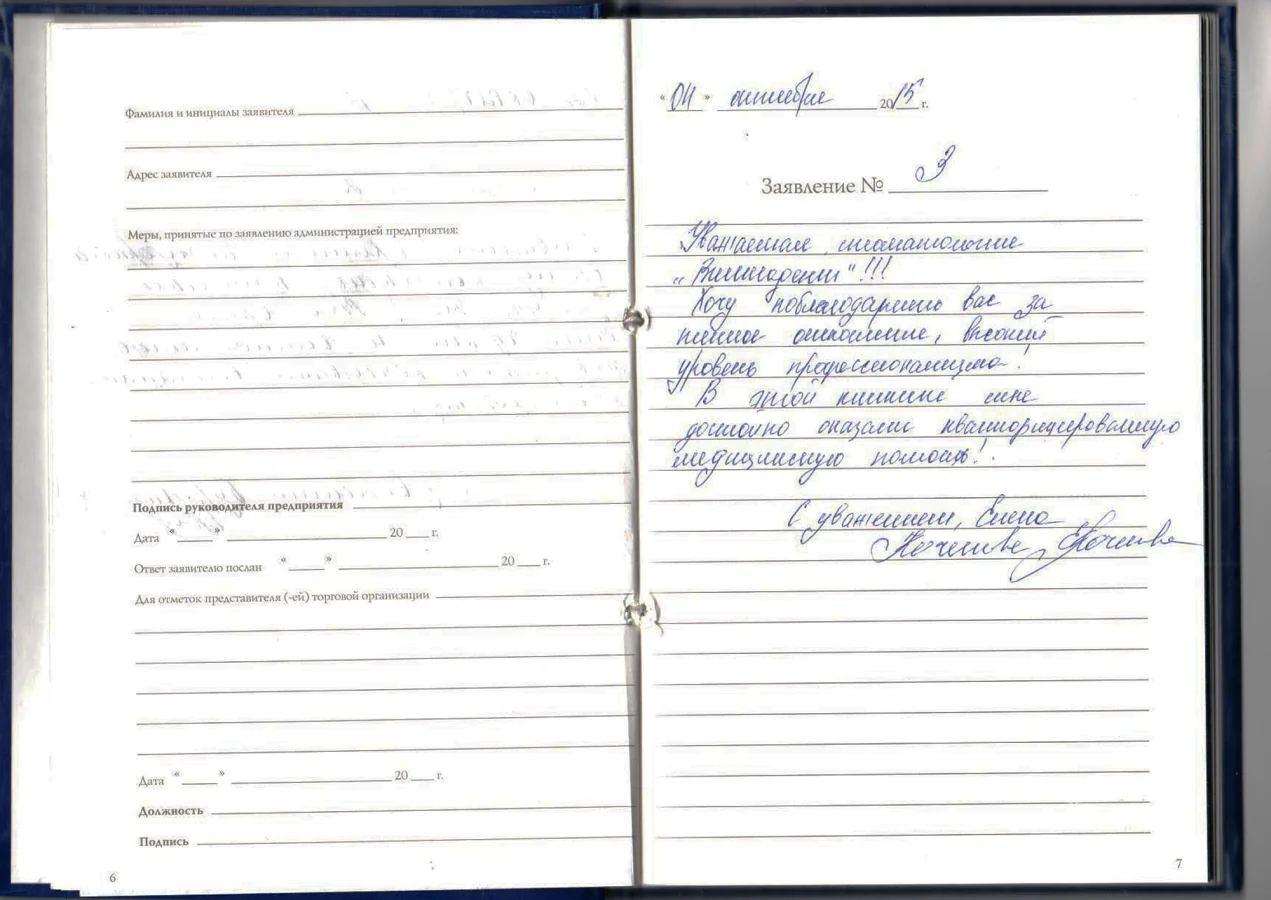 Фамилия и инициалы заявителя
Адрес заявителя
Меры, принятые по заявлению администрацией предприятия:
Подпись руководителя предприятия
Дата " " 20 г.
Ответ заявителю послан " " 20 г.
Для отметок представителя (-ей) торговой организации
Дата " " 20 г.
Должность
Подпись
6
"04" октября 2015 г.
Заявление № 3
Уважаемая стоматология
!!!
Хочу поблагодарить вас за
отношение, высокий
уровень профессионализма!
В этой клинике мне
достойно оказали квалифицированную
медицинскую помощь!
С уважением, Елена
7